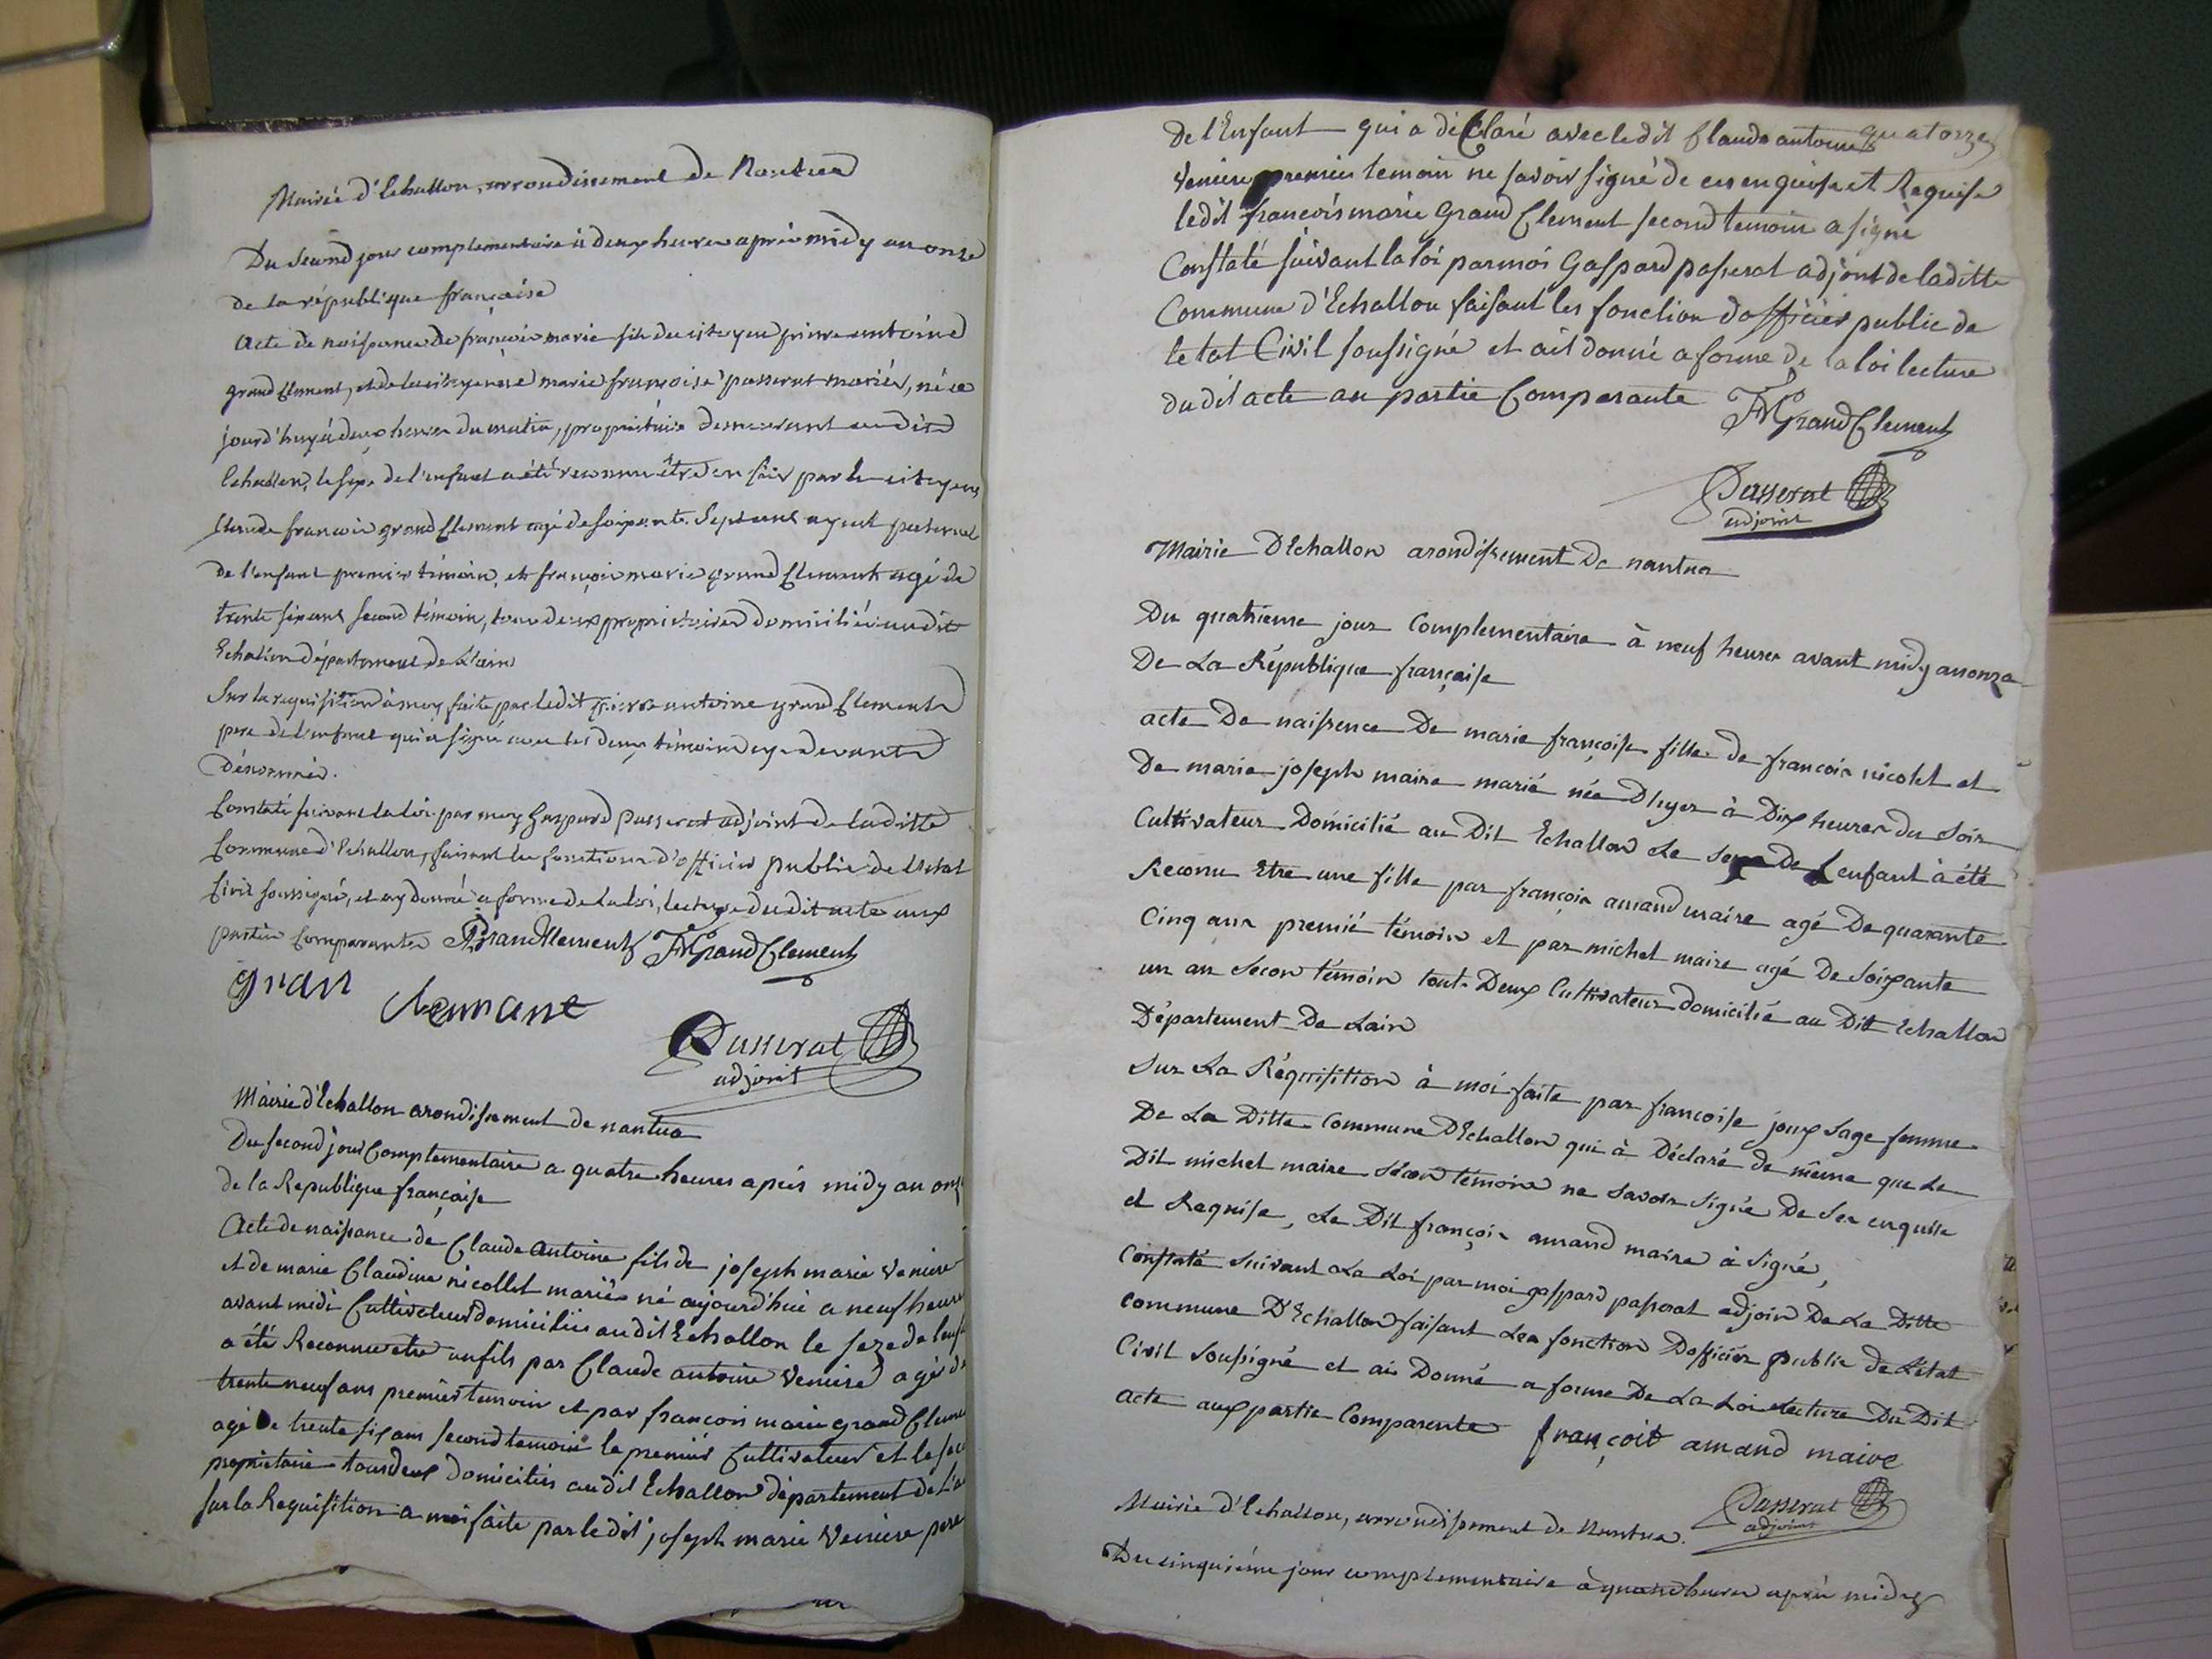 Mairie d'Echallon, arrondissement de Nantua
Du second jour complementaire à deux heures après midy an onze
de la république française
Acte de naissance de françois marie fils du citoyen pierre antoine
grand Clement, et de la citoyenne marie françoise passerat mariés, né ce
jourd'huy à deux heures du matin, propriétaire demeurant audit
Echallon, le sexe de l'enfant a été reconnu être un fils par le citoyen
Claude françois grand Clement agé de soixante sept ans ayeul paternel
de l'enfant premier témoin, et françois marie grand Clement agé de
trente six ans second témoin, tous deux propriétaires domiciliés audit
Echallon département de l'ain
Sur la requisition à moy faite par ledit pierre antoine grand Clement
pere de l'enfant qui a signé avec les deux témoins cy devant
dénommés.
Constaté suivant la loi par moy Gaspard Passerat adjoint de laditte
Commune d'Echallon, faisant les fonctions d'officier public de l'état
Civil soussigné, et ay donné a forme de la loi, lecture dudit acte aux
parties comparantes PAGrandClement FMGrandClement
gran Clemant
Passerat
adjoint
Mairie d'Echallon arondissement de nantua
Du second jour Complementaire a quatre heures apres midy an onz
de la Republique française
Acte de naissance de Claude Antoine fils de joseph marie Veniere
et de marie Claudine nicollet mariés né aujourd'hui a neuf heure
avant midi Cultivateur domiciliés audit Echallon le sexe de l'enf
a été Reconnu etre un fils par Claude antoine Veniere agé de
trente neuf ans premier temoin et par francois marie grand Cleme
agé de trente six ans second temoin le premier Cultivateur et le sec
proprietaire tous deux domiciliés audit Echallon département de l'a
sur la Requisition a moi faite par le dit joseph marie Veniere pere
quatorze
De l'Enfant qui a déclaré avec ledit Claude antoine
Veniere premier temoin ne savoir signé de ce enquise et Requise
ledit francois marie Grand Clement second temoin a signé
Constaté suivant la loi par moi Gaspard passerat adjoint de laditte
Commune d'Echallon faisant les fonction d'officier public de
letat Civil soussigné et ait donné a forme de la loi lecture
dudit acte au partie Comparante FMGrandClement
Passerat
adjoint
Mairie D'Echallon arondissement De nantua
Du quatrieme jour Complementaire à neuf heures avant midy an onze
De La République française
acte De naissence De marie françoise fille de francois nicolet et
De marie joseph maire marié née D'hyer à Dix heures du soir
Cultivateur Domicilié au Dit Echallon Le sexe De L'enfant à été
Reconu Etre une fille par françois amand maire agé De quarante
Cinq ans premié témoin et par michel maire agé De soixante
un an Secon témoin tout Deux Cultivateur domicilié au Dit Echallon
Département De Lain
Sur La Réquisition à moi faite par francoise joux sage femme
De La Ditte Commune D'Echallon qui à Déclaré de même que Le
Dit michel maire Sécon témoin ne savoir signé De ser enquise
et Requise, Le Dit françois amand maire à Signé,
Constaté suivant La Loi par moi gaspard passerat adjoin De La Ditte
Commune D'Echallon faisant Les fonction Dofficier public de L'état
Civil Soussigné et ai Donné a forme De La Loi Lecture Du Dit
acte aux partie Comparente françoit amand maire
Passerat
adjoint
Mairie d'Echallon, arrondissement de Nantua.
Du cinquiéme jour complementaire à quatre heures après midy